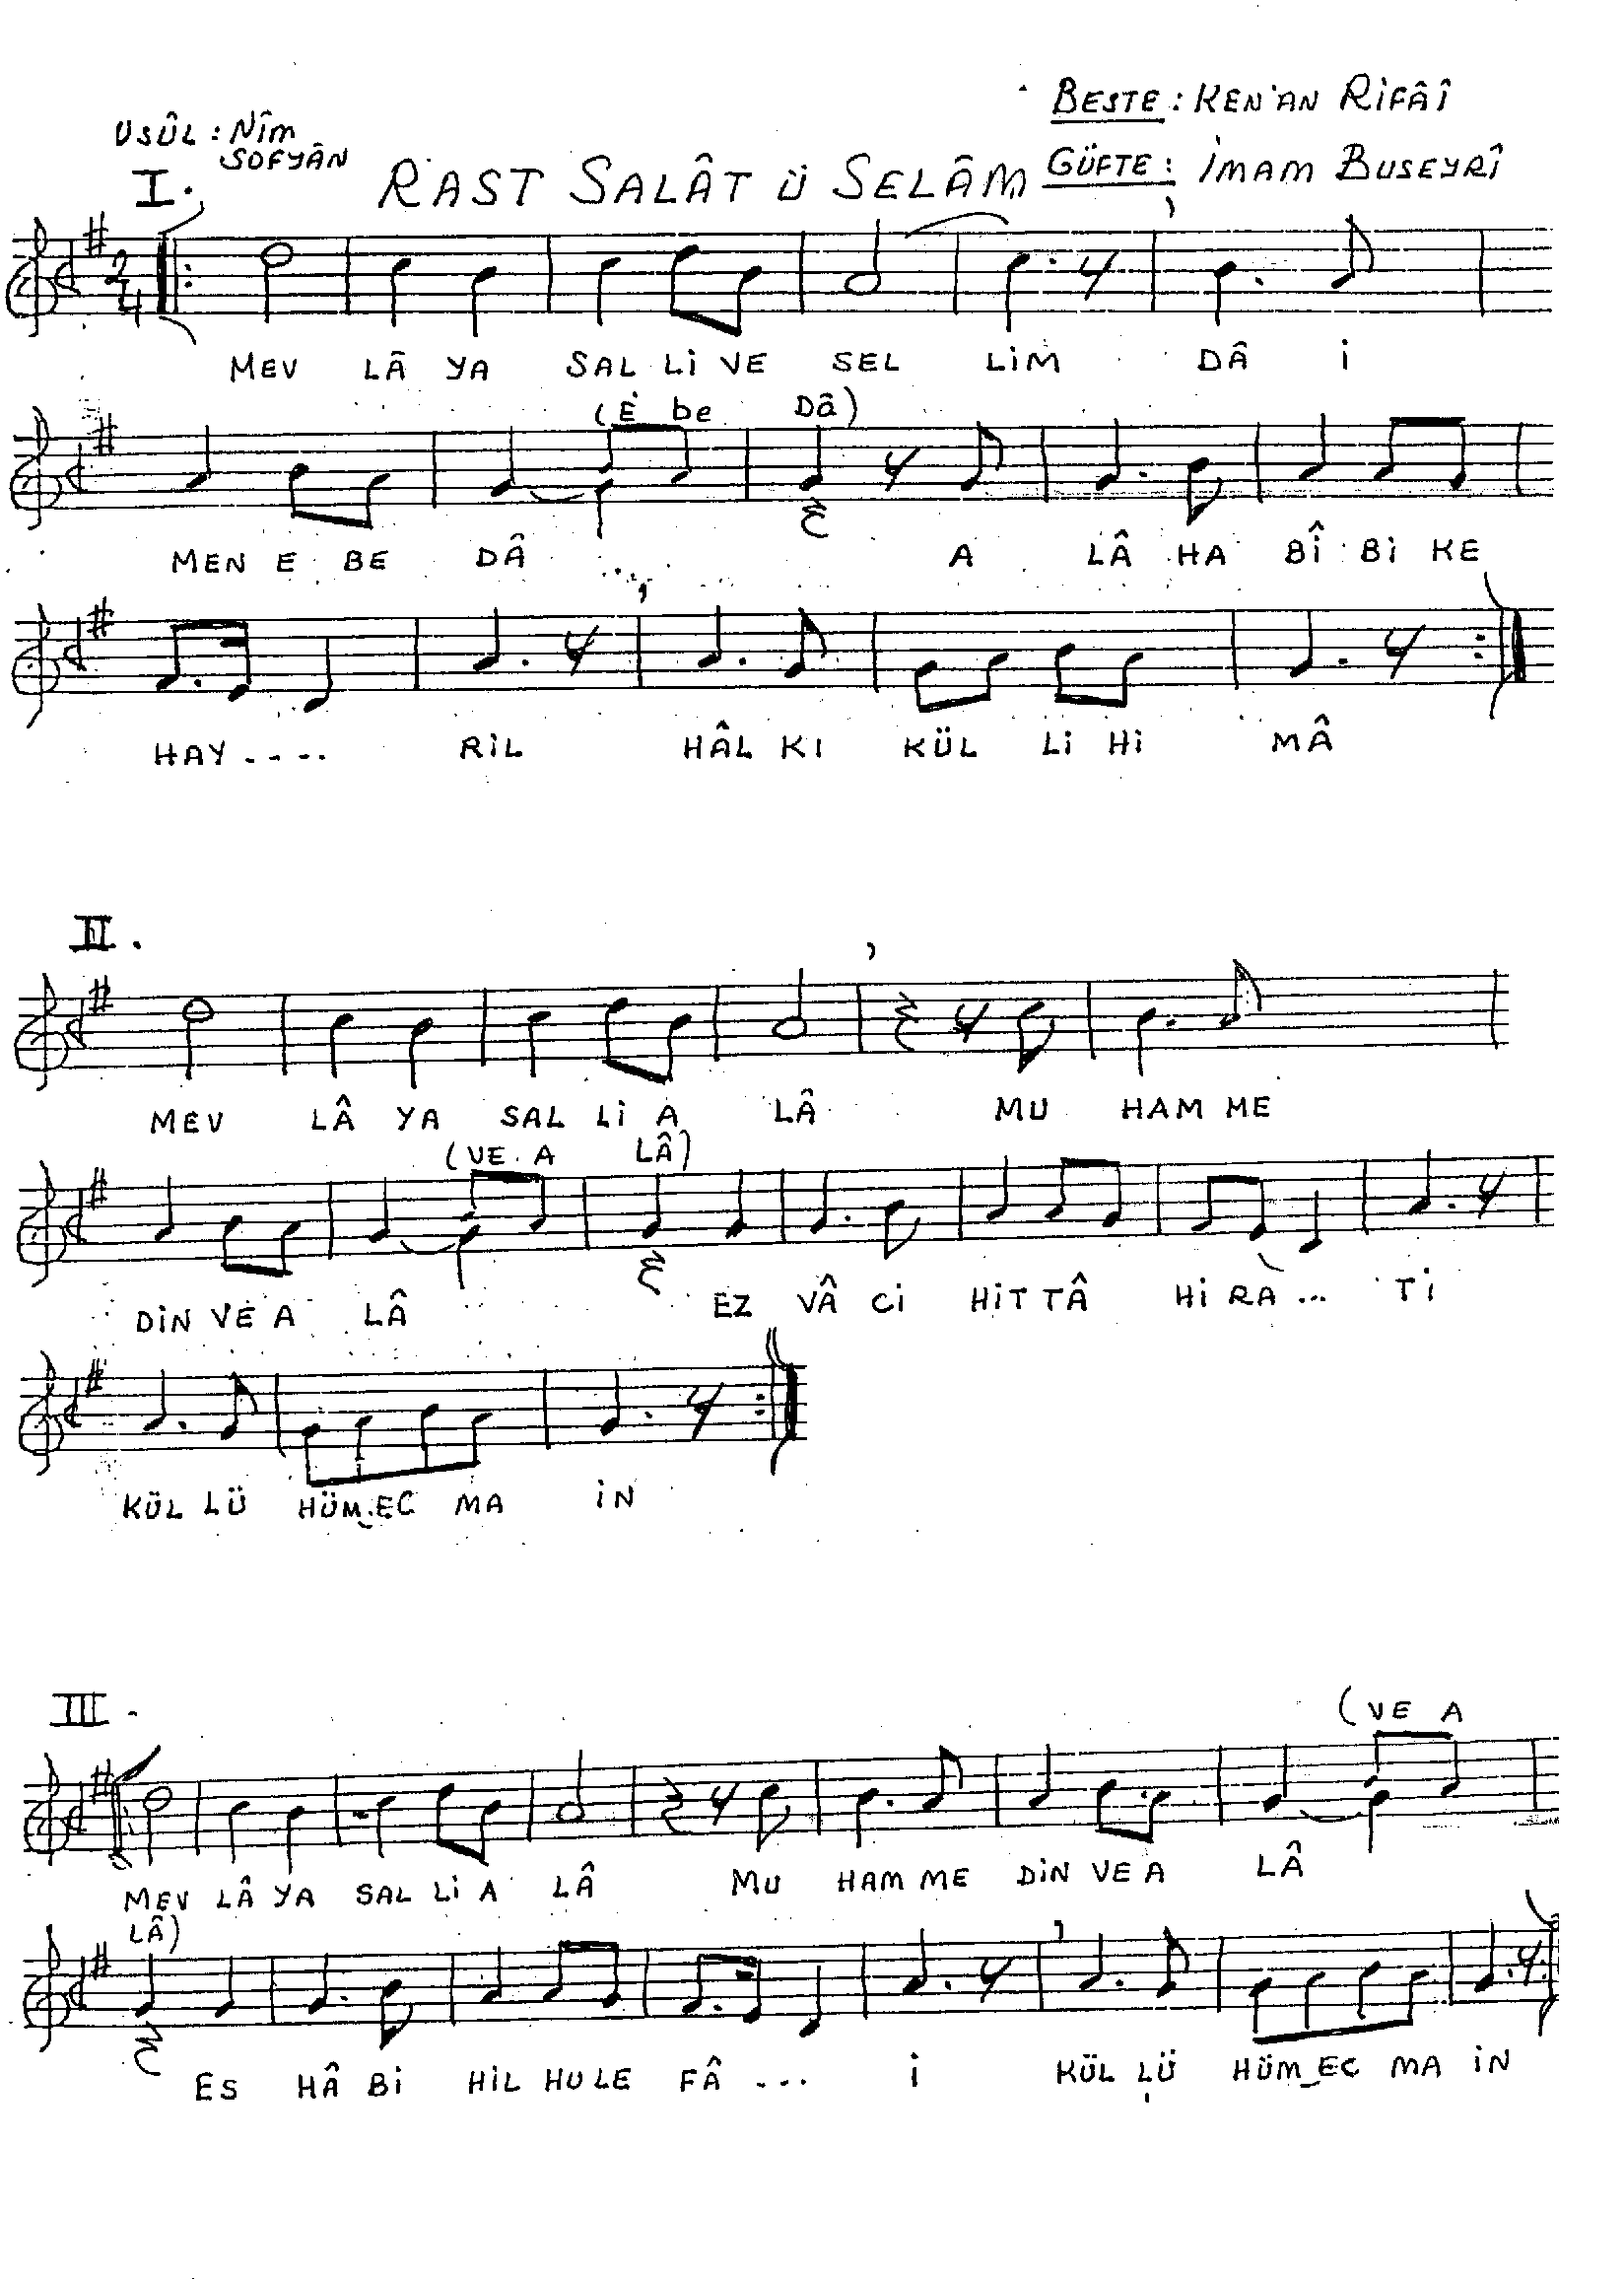 BESTE : KEN'AN RİFÂÎ
USÛL : NÎM
SOFYÂN
GÜFTE : İMAM BUSEYRÎ
I. RAST SALÂT Ü SELÂM
2
4
MEV LÂ YA SAL Lİ VE SEL LİM DÂ İ
(E be Dâ)
MEN E BE DÂ A LÂ HA BÎ Bİ KE
HAY.... RİL HÂL KI KÜL Lİ Hİ MÂ
II.
MEV LÂ YA SAL Lİ A LÂ MU HAM ME
(VE A LÂ)
DİN VE A LÂ EZ VÂ Cİ HİT TÂ Hİ RA ... Tİ
KÜL LÜ HÜM_EC MA İN
III.
(VE A
MEV LÂ YA SAL Lİ A LÂ MU HAM ME DİN VE A LÂ
LÂ)
ES HÂ Bİ HİL HU LE FÂ ... İ KÜL LÜ HÜM_EC MA İN